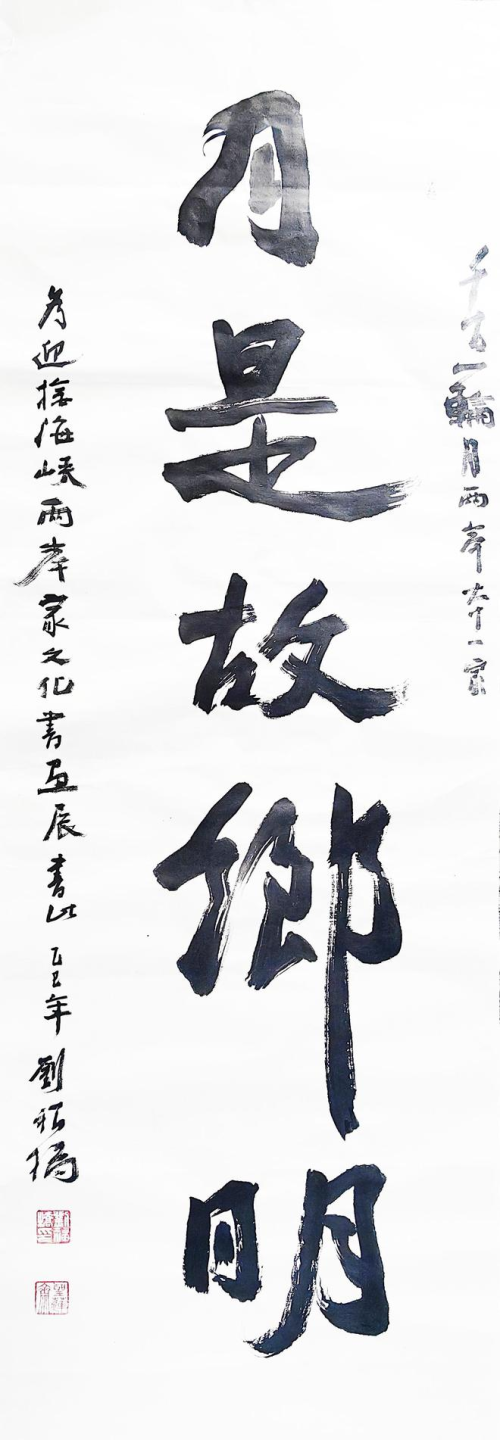 千一輪月兩岸本一家
月是故鄉明
為迎接海峽兩岸家文化書畫展書此 乙巳年 劉